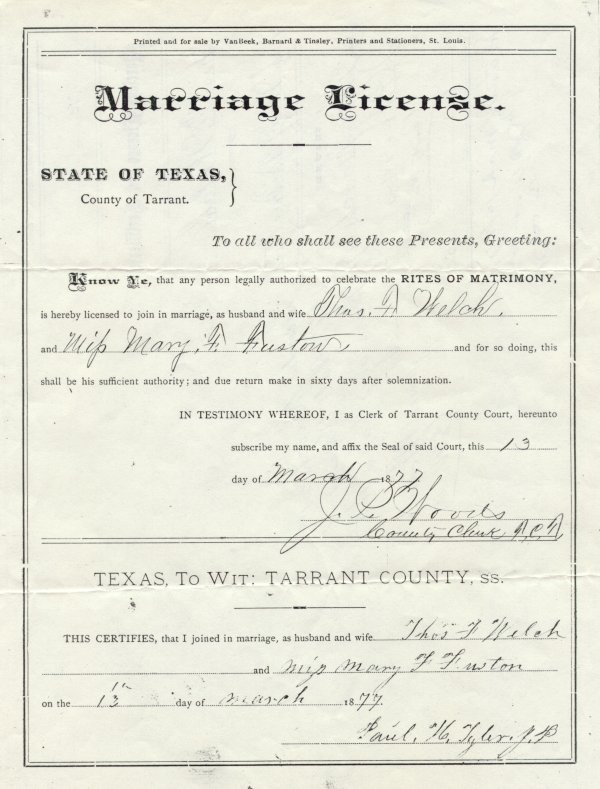 Printed and for sale by VanBeek, Barnard & Tinsley, Printers and Stationers, St. Louis.
Marriage License.
STATE OF TEXAS, }
County of Tarrant.
To all who shall see these Presents, Greeting:
Know Ye, that any person legally authorized to celebrate the RITES OF MATRIMONY,
is hereby licensed to join in marriage, as husband and wife Thos. F. Welch.
and Miss Mary. F. Fuston and for so doing, this
shall be his sufficient authority; and due return make in sixty days after solemnization.
IN TESTIMONY WHEREOF, I as Clerk of Tarrant County Court, hereunto
subscribe my name, and affix the Seal of said Court, this 13
day of March 1877
J. P. Woods
County Clerk
TEXAS, TO WIT: TARRANT COUNTY, SS.
THIS CERTIFIES, that I joined in marriage, as husband and wife Thos F Welch
and miss mary F Fuston
on the 13th day of march 1877.
Paul. H. Tyler. J. P